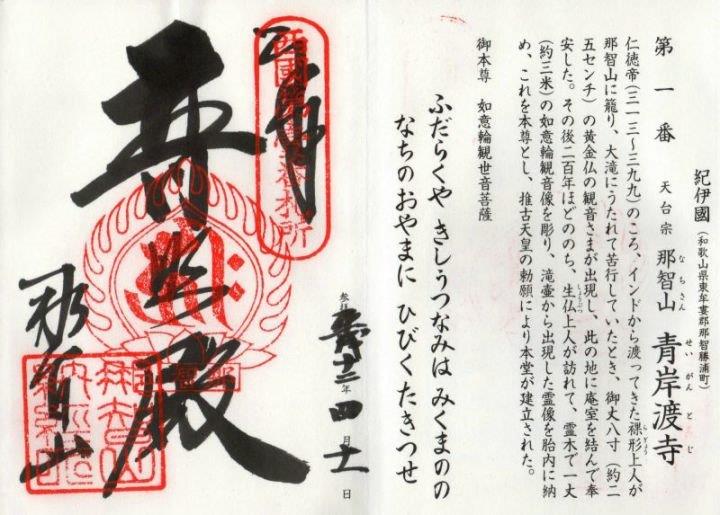 第一番
紀伊國(和歌山県東牟婁郡那智勝浦町)
天台宗 那智山 青岸渡寺
なちさん せいがんとじ
仁徳帝(三一三〜三九九)のころ、インドから渡ってきた裸形上人が
らぎょう
那智山に籠り、大滝にうたれて苦行していたとき、御丈八寸(約二
五センチ)の黄金仏の観音さまが出現し、此の地に庵室を結んで奉
安した。その後二百年ほどののち、生仏上人が訪れて、霊木で一丈
しょうぶつ
(約三米)の如意輪観世音像を彫り、滝壷から出現した霊像を胎内に納
め、これを本尊とし、推古天皇の勅願により本堂が建立された。
御本尊 如意輪観世音菩薩
ふだらくや きしうつなみは みくまのの
なちのおやまに ひびくたきつせ
参拝
十二年四月十一日
奉拝
西國第壹番札所
普照殿
那智山